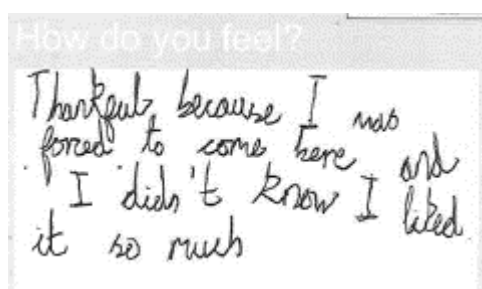 How do you feel?
Thankful because I was
forced to come here and
I didn't know I liked
it so much